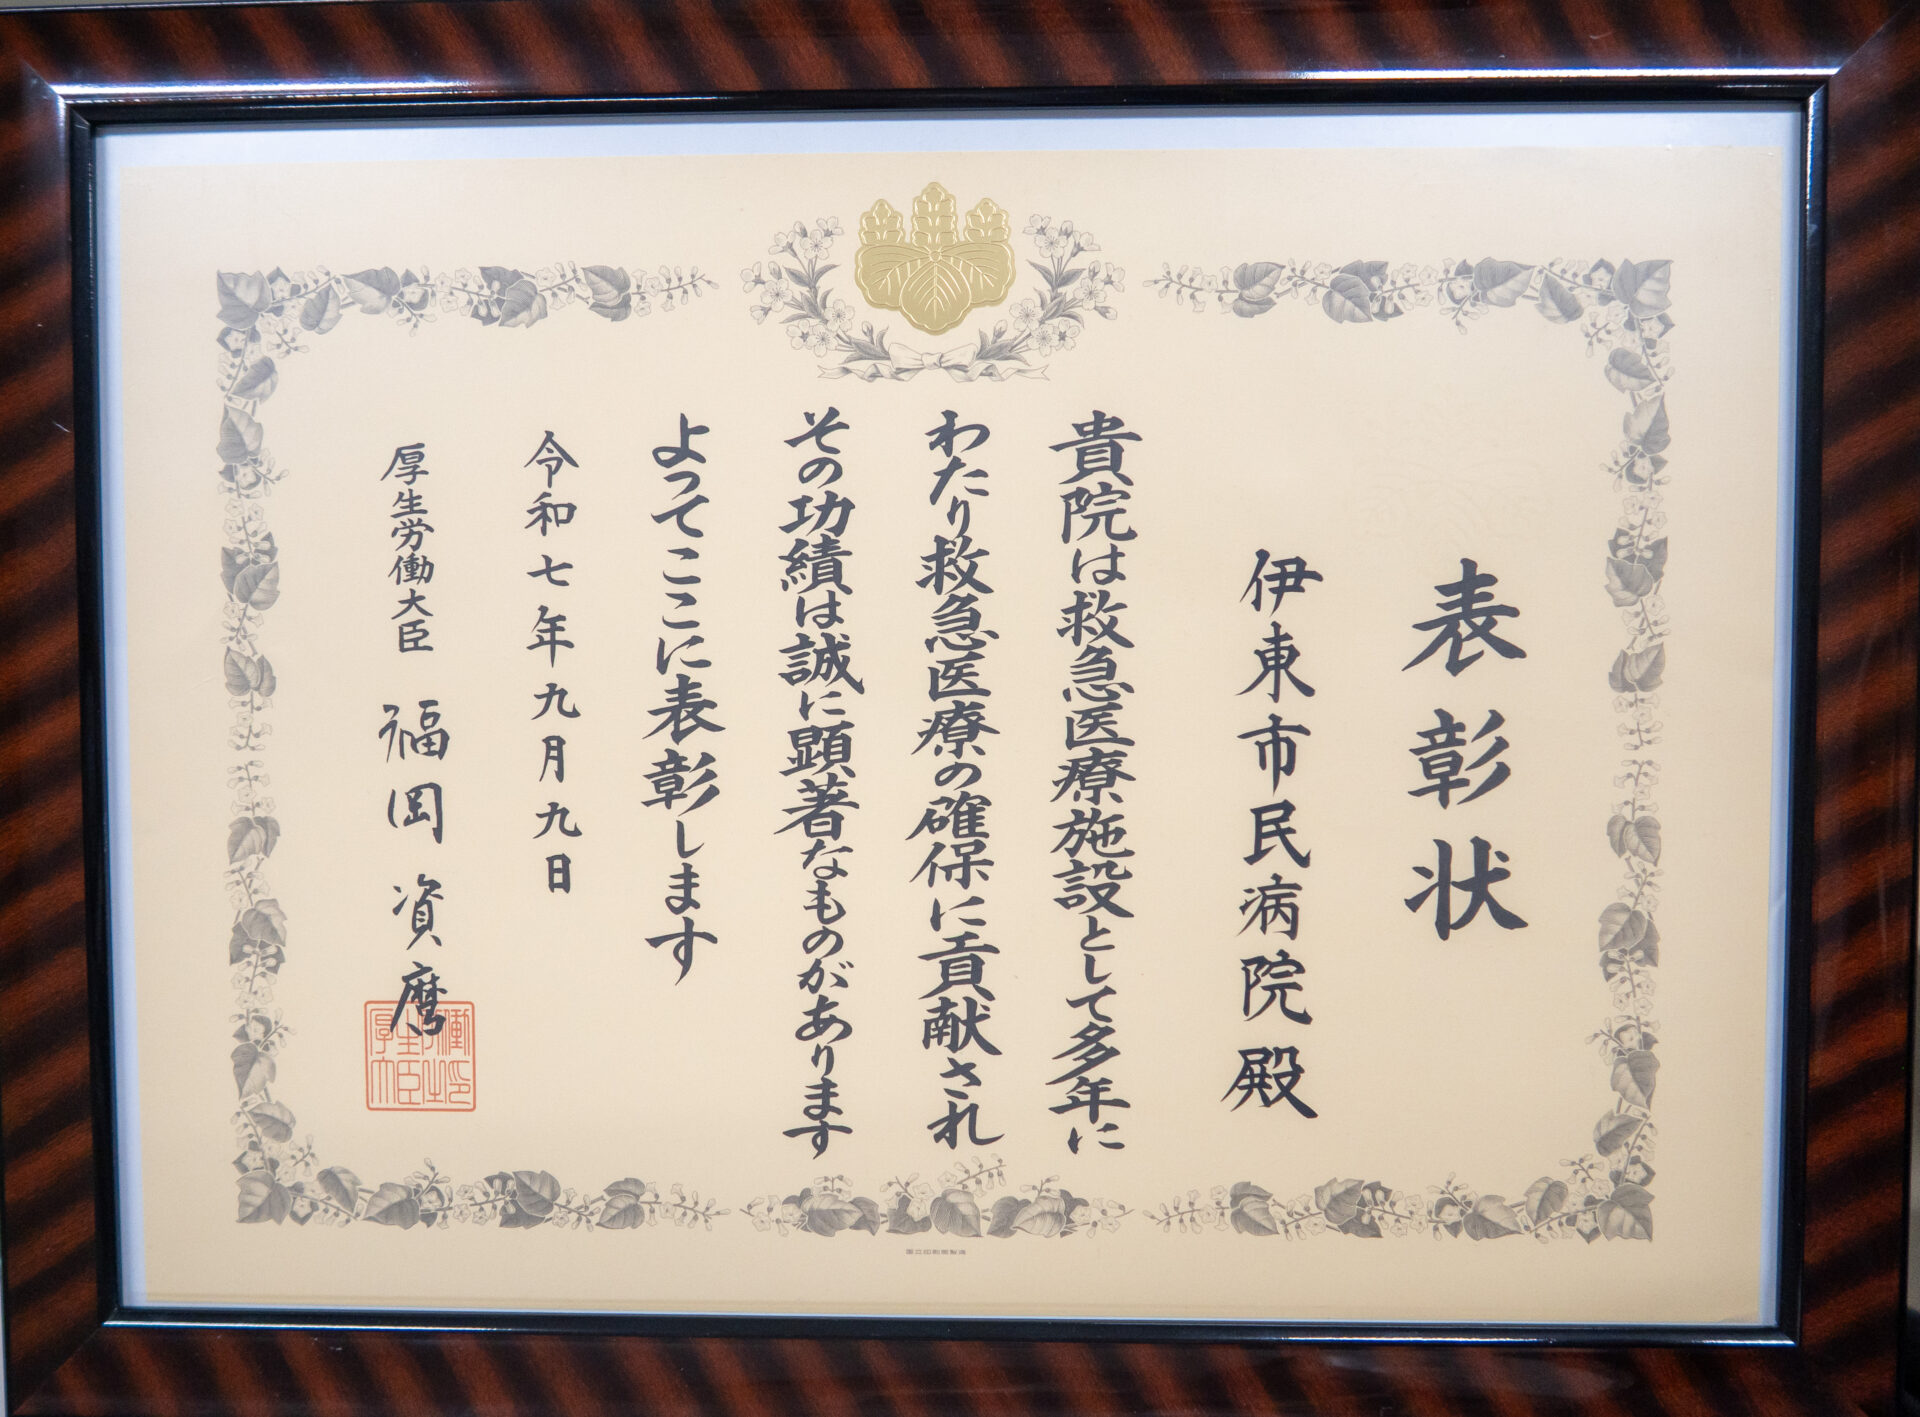 表彰状
伊東市民病院殿
貴院は救急医療施設として多年に
わたり救急医療の確保に貢献され
その功績は誠に顕著なものがあります
よってここに表彰します
令和七年九月九日
厚生労働大臣 福岡資麿
国立印刷局製造